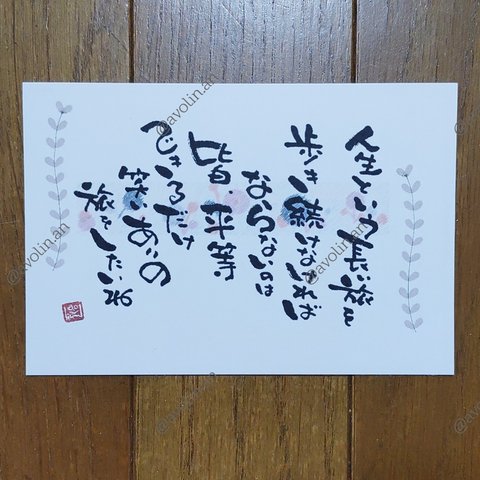 人生という長い旅を
歩き続けなければ
ならないのは
皆、平等
できるだけ
笑いありの
旅をしたいね
@avolin.an
@avolin.an
@avolin.an
@avolin.an
@avolin.an
@avolin.an
@avolin.an
@avolin.an